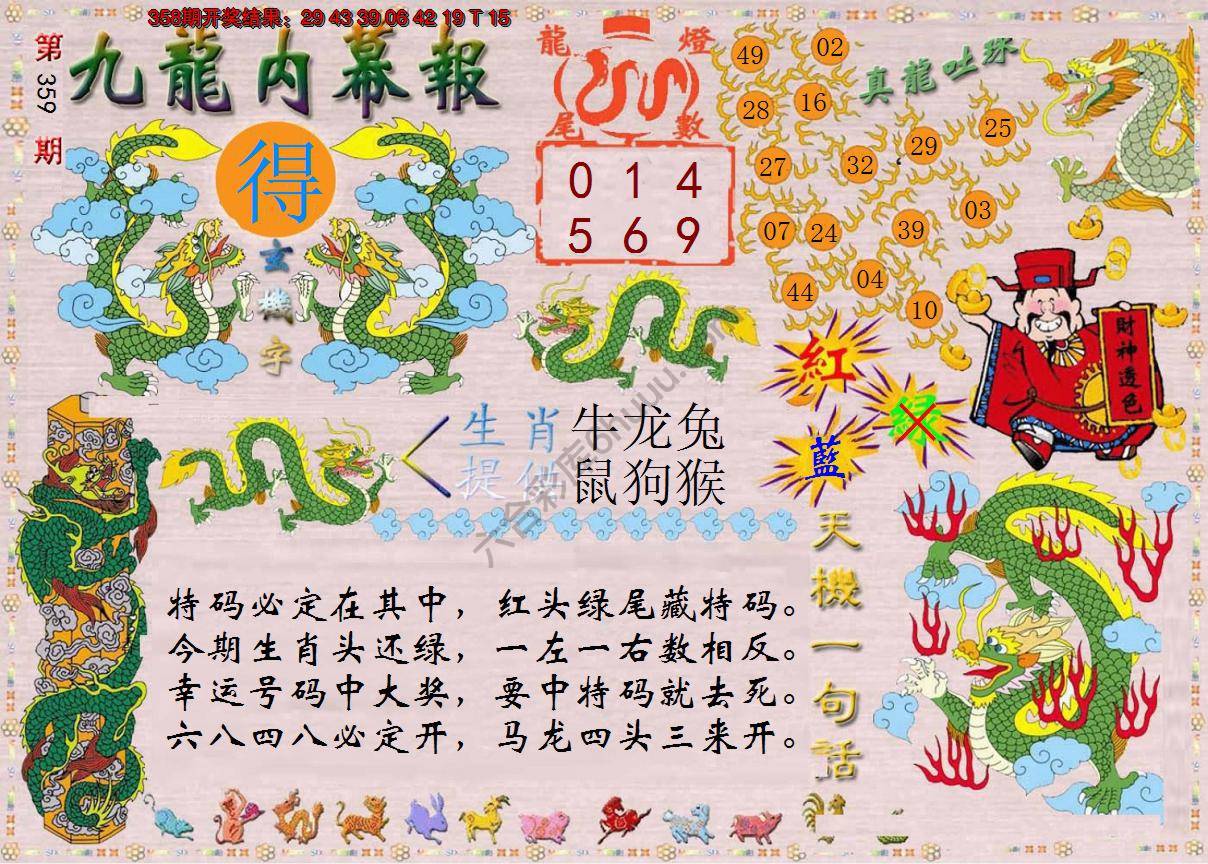 358期开奖结果：29 43 39 06 42 19 T 15
第359期
九龍内幕報
得
玄機字
龍燈
尾數
0 1 4
5 6 9
真龍吐珠
49 02
28 16
27 32 29 25
07 24 39 03
44 04 10
財神透色
紅
绿
藍
生肖
提供
牛龙兔
鼠狗猴
特码必定在其中，红头绿尾藏特码。
今期生肖头还绿，一左一右数相反。
幸运号码中大奖，要中特码就去死。
六八四八必定开，马龙四头三来开。
天機一句話